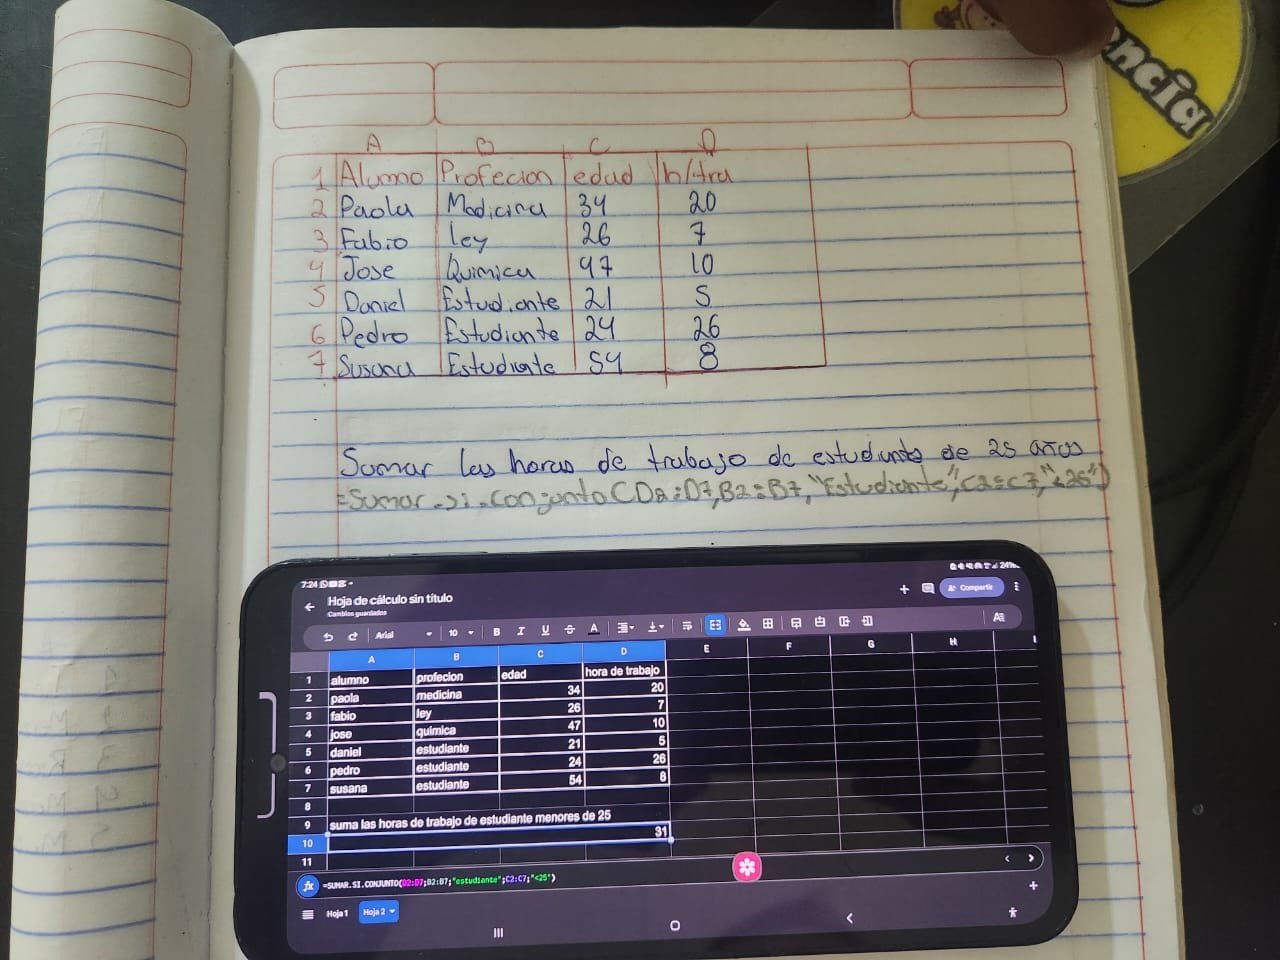 ncia
A B C D
1 Alumno Profecion edad h/tra
2 Paola Medicina 34 20
3 Fabio ley 26 7
4 Jose Quimica 47 10
5 Daniel Estudiante 21 5
6 Pedro Estudiante 24 26
7 Susana Estudiante 54 8
Sumar las horas de trabajo de estudiante de 25 años
=Sumar.si.Conjunto(D2:D7,B2:B7,"Estudiante",C2:C7,"<26")
7:24
24%
Hoja de cálculo sin título
Cambios guardados
Compartir
Arial 10 B I U S A
A B C D E F G H
1 alumno profecion edad hora de trabajo
2 paola medicina 34 20
3 fabio ley 26 7
4 jose quimica 47 10
5 daniel estudiante 21 5
6 pedro estudiante 24 26
7 susana estudiante 54 8
8
9 suma las horas de trabajo de estudiante menores de 25
10 31
11
fx =SUMAR.SI.CONJUNTO(D2:D7;B2:B7;"estudiante";C2:C7;"<25")
Hoja 1 Hoja 2